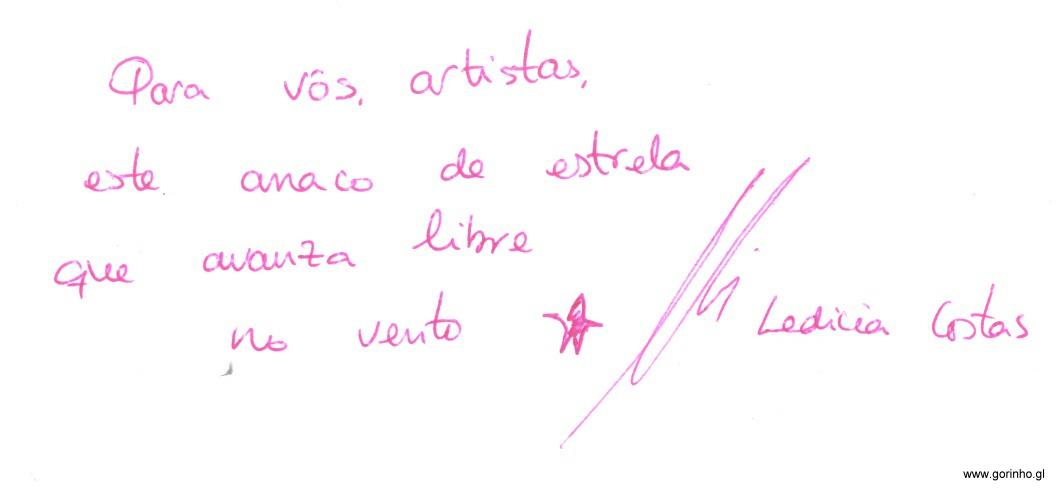 Para vós, artistas,
este anaco de estrela
que avanza libre
no vento
Ledicia Costas
www.gorinho.gl